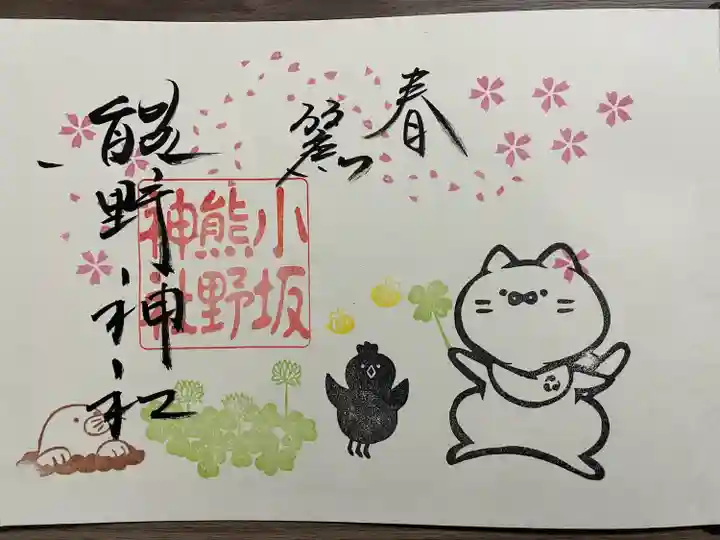 春麗
小坂
熊野
神社
熊野神社